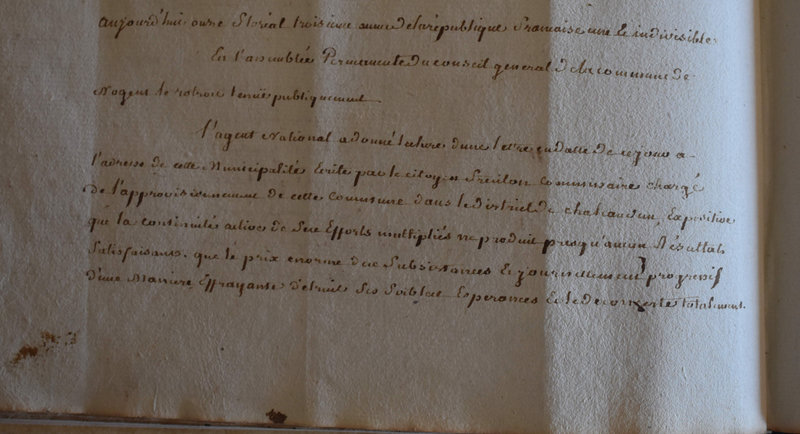 aujourd'hui onze floréal troisieme année de la république française une & indivisible.
En l'assemblée Permanente du conseil general de la commune de
Nogent le rotrou tenüe publiquement
l'agent National a donné lecture d'une lettre en datte de ce jour a
l'adresse de cette Municipalité Ecrite par le citoyen commissaire chargé
de l'approvisionnement de cette commune dans le District de chateaudun, Expositive
que la continuité active de ses Efforts multipliés ne produit presqu'aucun Résultat
satisfaisant. que le prix enorme des subsistances & journellement progressif
d'une Maniere Effrayante detruit ses foibles Esperances & le deconcerte totalement.